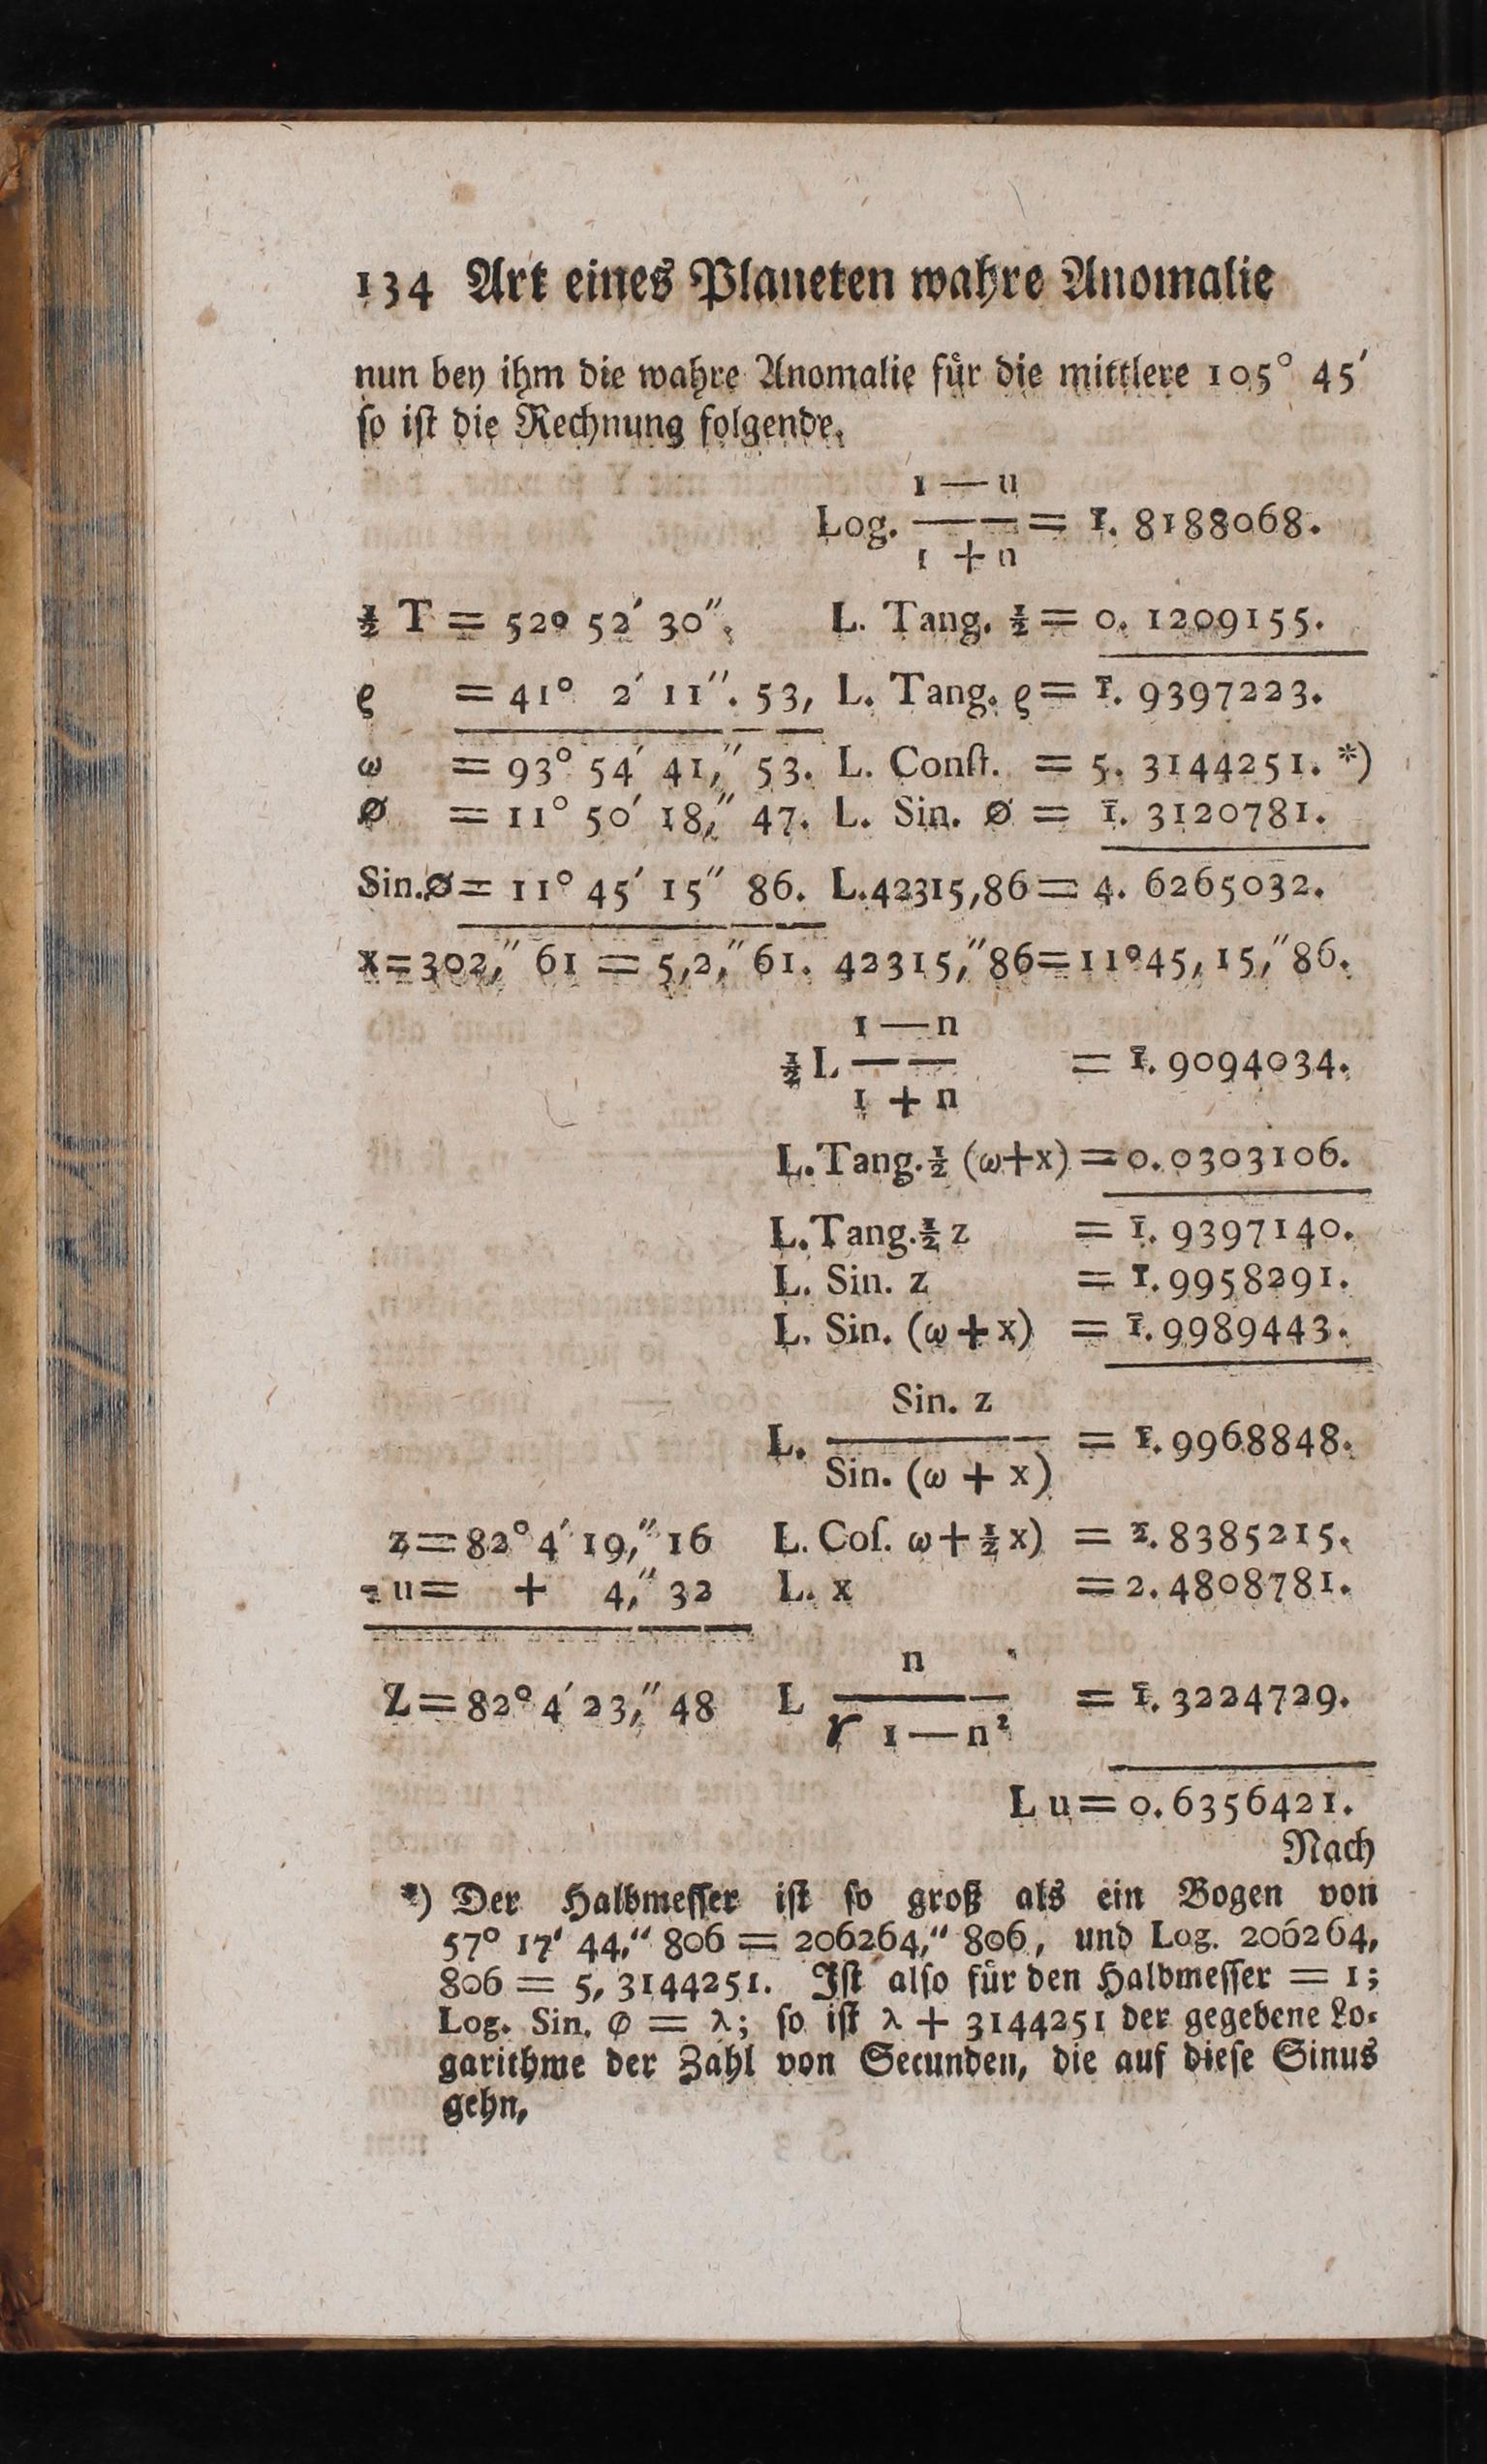 134 Art eines Planeten wahre Anomalie
nun bey ihm die wahre Anomalie für die mittlere 105° 45′
ſo iſt die Rechnung folgende,
1 — u
Log. ——— = 1̅. 8188068.
1 + n
½ T = 520 52′ 30″, L. Tang. ½ = 0. 1209155.
ϱ = 41° 2′ 11″. 53, L. Tang. ϱ = 1̅. 9397223.
ω = 93° 54′ 41,″ 53. L. Conſt. = 5. 3144251. *)
Ø = 11° 50′ 18,″ 47. L. Sin. Ø = 1̅. 3120781.
Sin.Ø = 11° 45′ 15″ 86. L.42315,86 = 4. 6265032.
x = 302,″ 61 = 5,2,″ 61. 42315,″86 = 11°45, 15,″86.
1 — n
½ L ——— = 1̅. 9094034.
1 + n
L.Tang.½ (ω+x) = 0.0303106.
L.Tang.½ z = 1̅. 9397140.
L. Sin. z = 1̅. 9958291.
L. Sin. (ω + x) = 1̅. 9989443.
Sin. z
L. ——— = 1̅. 9968848.
Sin. (ω + x)
z = 82° 4′ 19,″ 16 L. Coſ. ω + ½ x) = 2̅. 8385215.
- u = + 4,″ 32 L. x = 2. 4808781.
n
Z = 82° 4′ 23,″ 48 L ——— = 1̅. 3224729.
r 1 — n²
L u = 0. 6356421.
Nach
*) Der Halbmeſſer iſt ſo groß als ein Bogen von
57° 17′ 44,″ 806 = 206264,″ 806, und Log. 206264,
806 = 5, 3144251. Iſt alſo für den Halbmeſſer = 1;
Log. Sin. φ = λ; ſo iſt λ + 3144251 der gegebene Lo-
garithme der Zahl von Secunden, die auf dieſe Sinus
gehn,